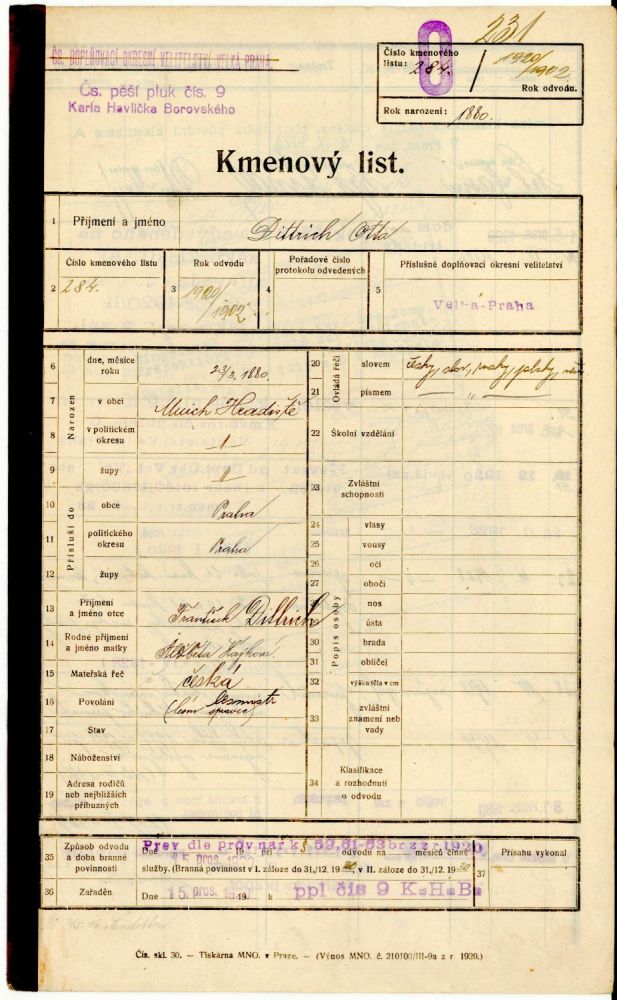 231
ČS. DOPLŇOVACÍ OKRESNÍ VELITELSTVÍ VELKÁ PRAHA.
Čs. pěší pluk čís. 9
Karla Havlíčka Borovského
Číslo kmenového listu: 284.
1920/1902
Rok odvodu.
Rok narození: 1880.
Kmenový list.
1 Příjmení a jméno Dittrich Otto
Číslo kmenového listu Rok odvodu Pořadové číslo protokolu odvedených Příslušné doplňovací okresní velitelství
2 284. 3 1920/1902 4 5 Velká-Praha
Narozen
6 dne, měsíce roku 1880.
7 v obci Hradiště
8 v politickém okresu „
9 župy „
Přísluší do
10 obce Praha
11 politického okresu Praha
12 župy
13 Příjmení a jméno otce František Dittrich
14 Rodné příjmení a jméno matky Alžběta
15 Mateřská řeč česká
16 Povolání lesmistr
správce
17 Stav
18 Náboženství
19 Adresa rodičů neb nejbližších příbuzných
Ovládá řeči
20 slovem česky, polsky,
21 písmem — „ —
22 Školní vzdělání
23 Zvláštní schopnosti
Popis osoby
24 vlasy
25 vousy
26 oči
27 obočí
nos
ústa
30 brada
31 obličej
32 výška těla v cm
33 zvláštní znamení neb vady
34 Klasifikace a rozhodnutí o odvodu
35 Způsob odvodu a doba branné povinnosti
Přev dle prov nař. k § 59,61-63 br z z r 1920
Dne 15 pros. při odvodu na měsíců činné
služby. (Branná povinnost v I. záloze do 31./12. 19 , v II. záloze do 31./12. 19 )
37 Přísahu vykonal
36 Zařaděn Dne 15 pros. k ppl čis 9 K.H.B.
Čís. skl. 30. — Tiskárna MNO. v Praze. — (Výnos MNO. č. 210100/III-9a z r. 1920.)